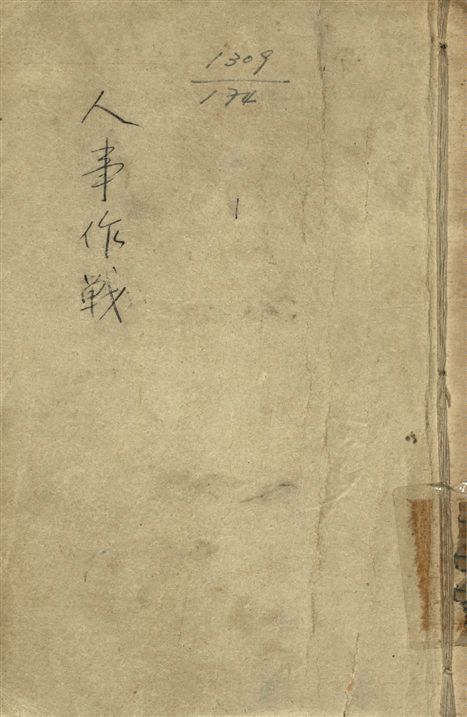 1309
174
人事作戦